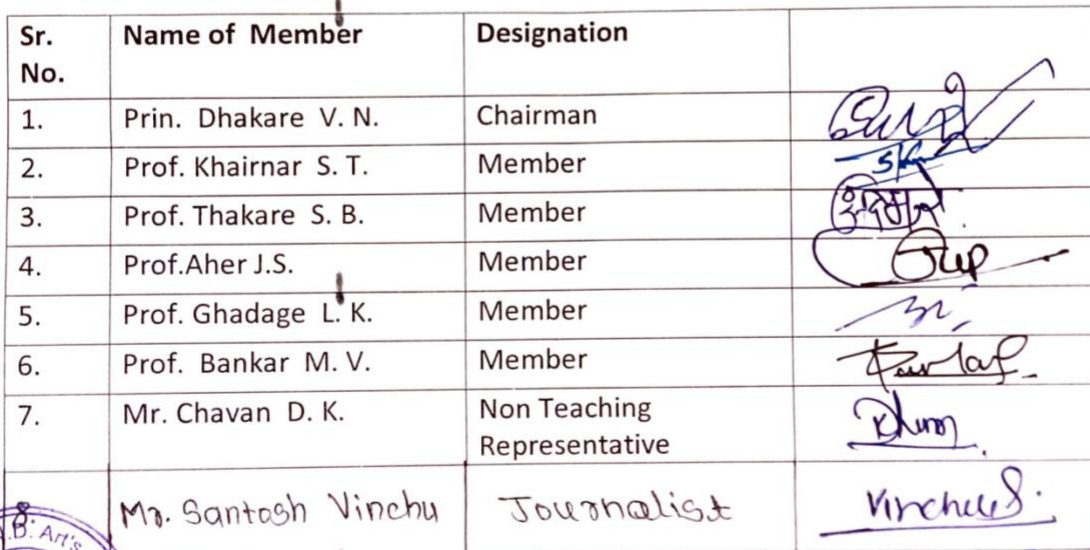 Sr. No. Name of Member Designation
1. Prin. Dhakare V. N. Chairman
2. Prof. Khairnar S. T. Member
3. Prof. Thakare S. B. Member
4. Prof.Aher J.S. Member
5. Prof. Ghadage L. K. Member
6. Prof. Bankar M. V. Member
7. Mr. Chavan D. K. Non Teaching Representative
8. Mr. Santosh Vinchu Journalist VinchuS.
.B. Art's